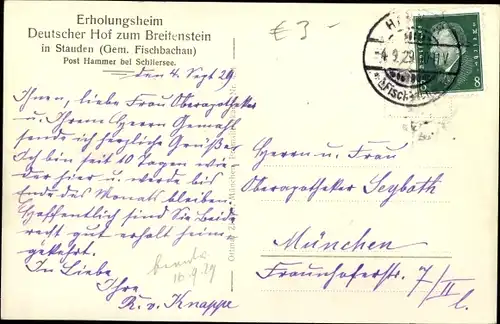 Erholungsheim
Deutscher Hof zum Breitenstein
in Stauden (Gem. Fischbachau)
Post Hammer bei Schliersee.
den 4. Sept 29
Ihnen, liebe Frau Oberapotheker
u Ihrem Herrn Gemahl
sende ich herzliche Grüße.
Ich bin seit 10 Tagen wie-
der hier u. werde bis
Ende des Monats bleiben.
Hoffentlich sind Sie beide
recht gut erhalt heim-
gekehrt.
In Liebe
Ihre
R. v. Knappe
10.9.29
€ 3-
4.9.29
8
Herrn u. Frau
Oberapotheker Seyboth
München
Fraunhoferstr. 7/II
l.